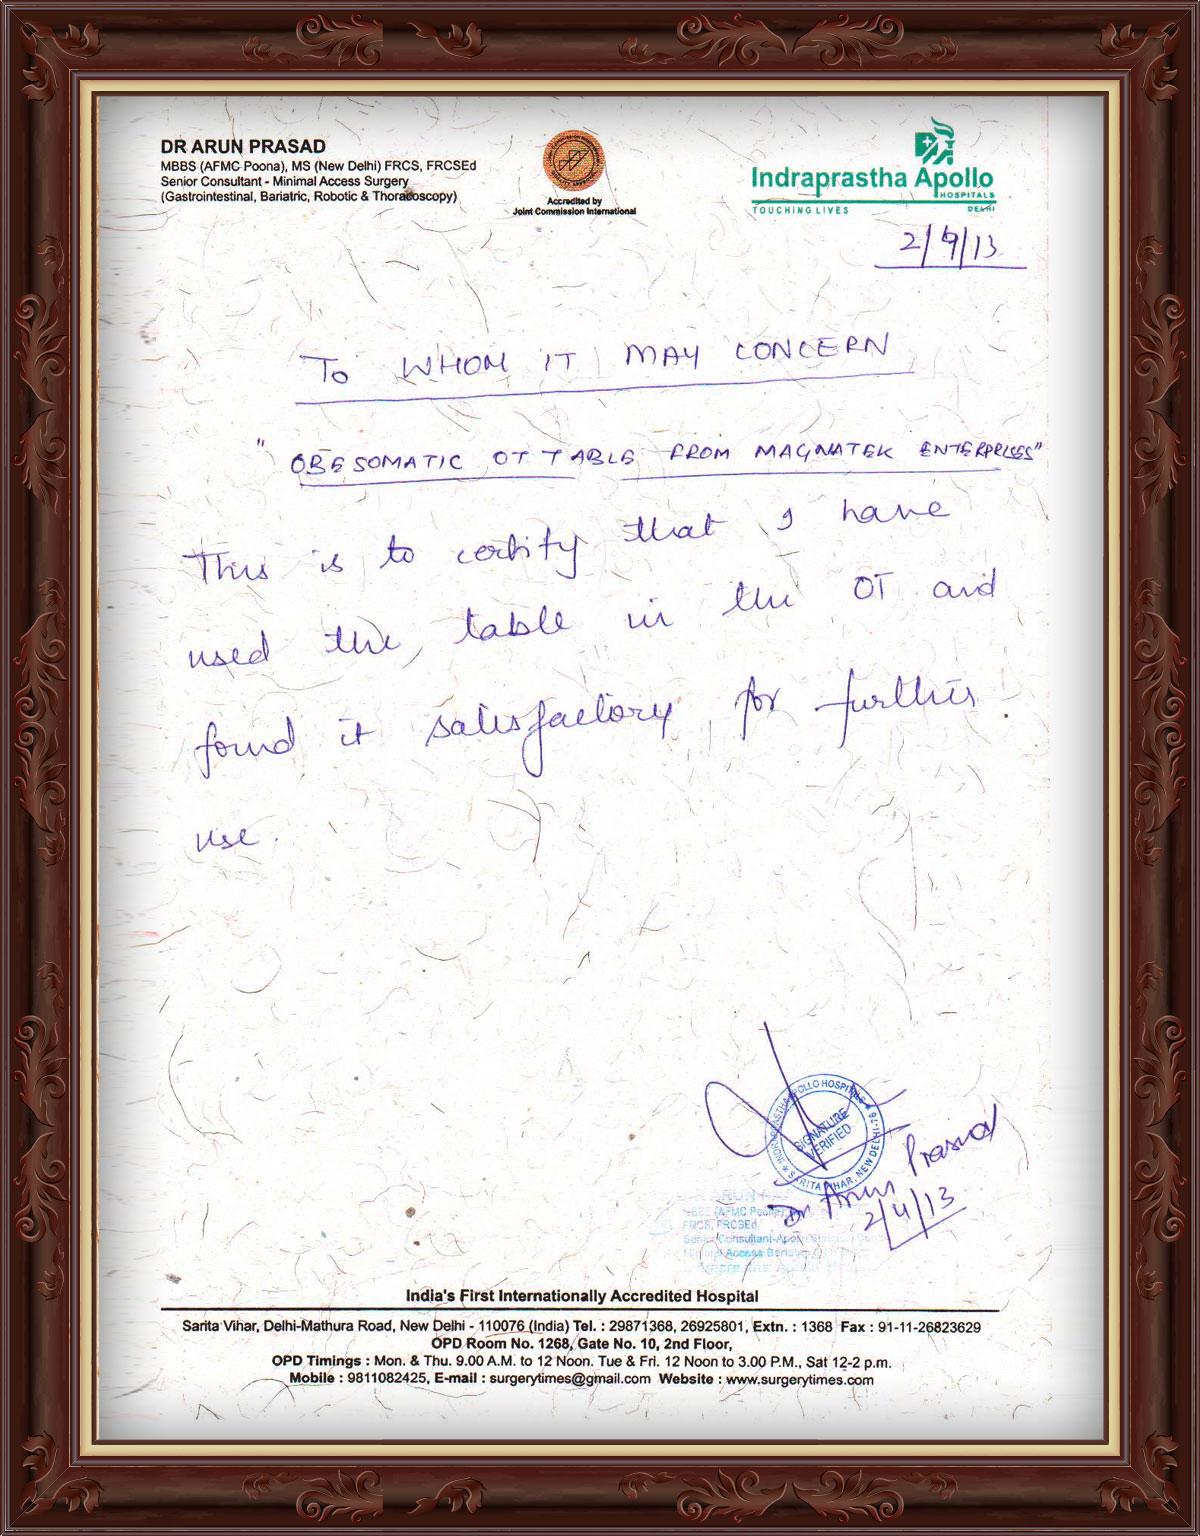 DR ARUN PRASAD
MBBS (AFMC Poona), MS (New Delhi) FRCS, FRCSEd
Senior Consultant - Minimal Access Surgery
(Gastrointestinal, Bariatric, Robotic & Thoracoscopy)
Accredited by
Joint Commission International
Indraprastha Apollo
HOSPITALS
TOUCHING LIVES DELHI
2/4/13
TO WHOM IT MAY CONCERN
"OBESOMATIC OT TABLE FROM MAGNATEK ENTERPRISES"
This is to certify that I have
used the table in the OT and
found it satisfactory for further
use.
INDRAPRASTHA APOLLO HOSPITALS
SARITA VIHAR, NEW DELHI-76
SIGNATURE
VERIFIED
Dr Arun Prasad
2/4/13
DR ARUN
MBBS (AFMC Poona)
FRCS, FRCSEd
Senior Consultant-Apollo
Minimal Access
Indraprastha Apollo
India's First Internationally Accredited Hospital
Sarita Vihar, Delhi-Mathura Road, New Delhi - 110076 (India) Tel. : 29871368, 26925801, Extn. : 1368 Fax : 91-11-26823629
OPD Room No. 1268, Gate No. 10, 2nd Floor,
OPD Timings : Mon. & Thu. 9.00 A.M. to 12 Noon. Tue & Fri. 12 Noon to 3.00 P.M., Sat 12-2 p.m.
Mobile : 9811082425, E-mail : surgerytimes@gmail.com Website : www.surgerytimes.com